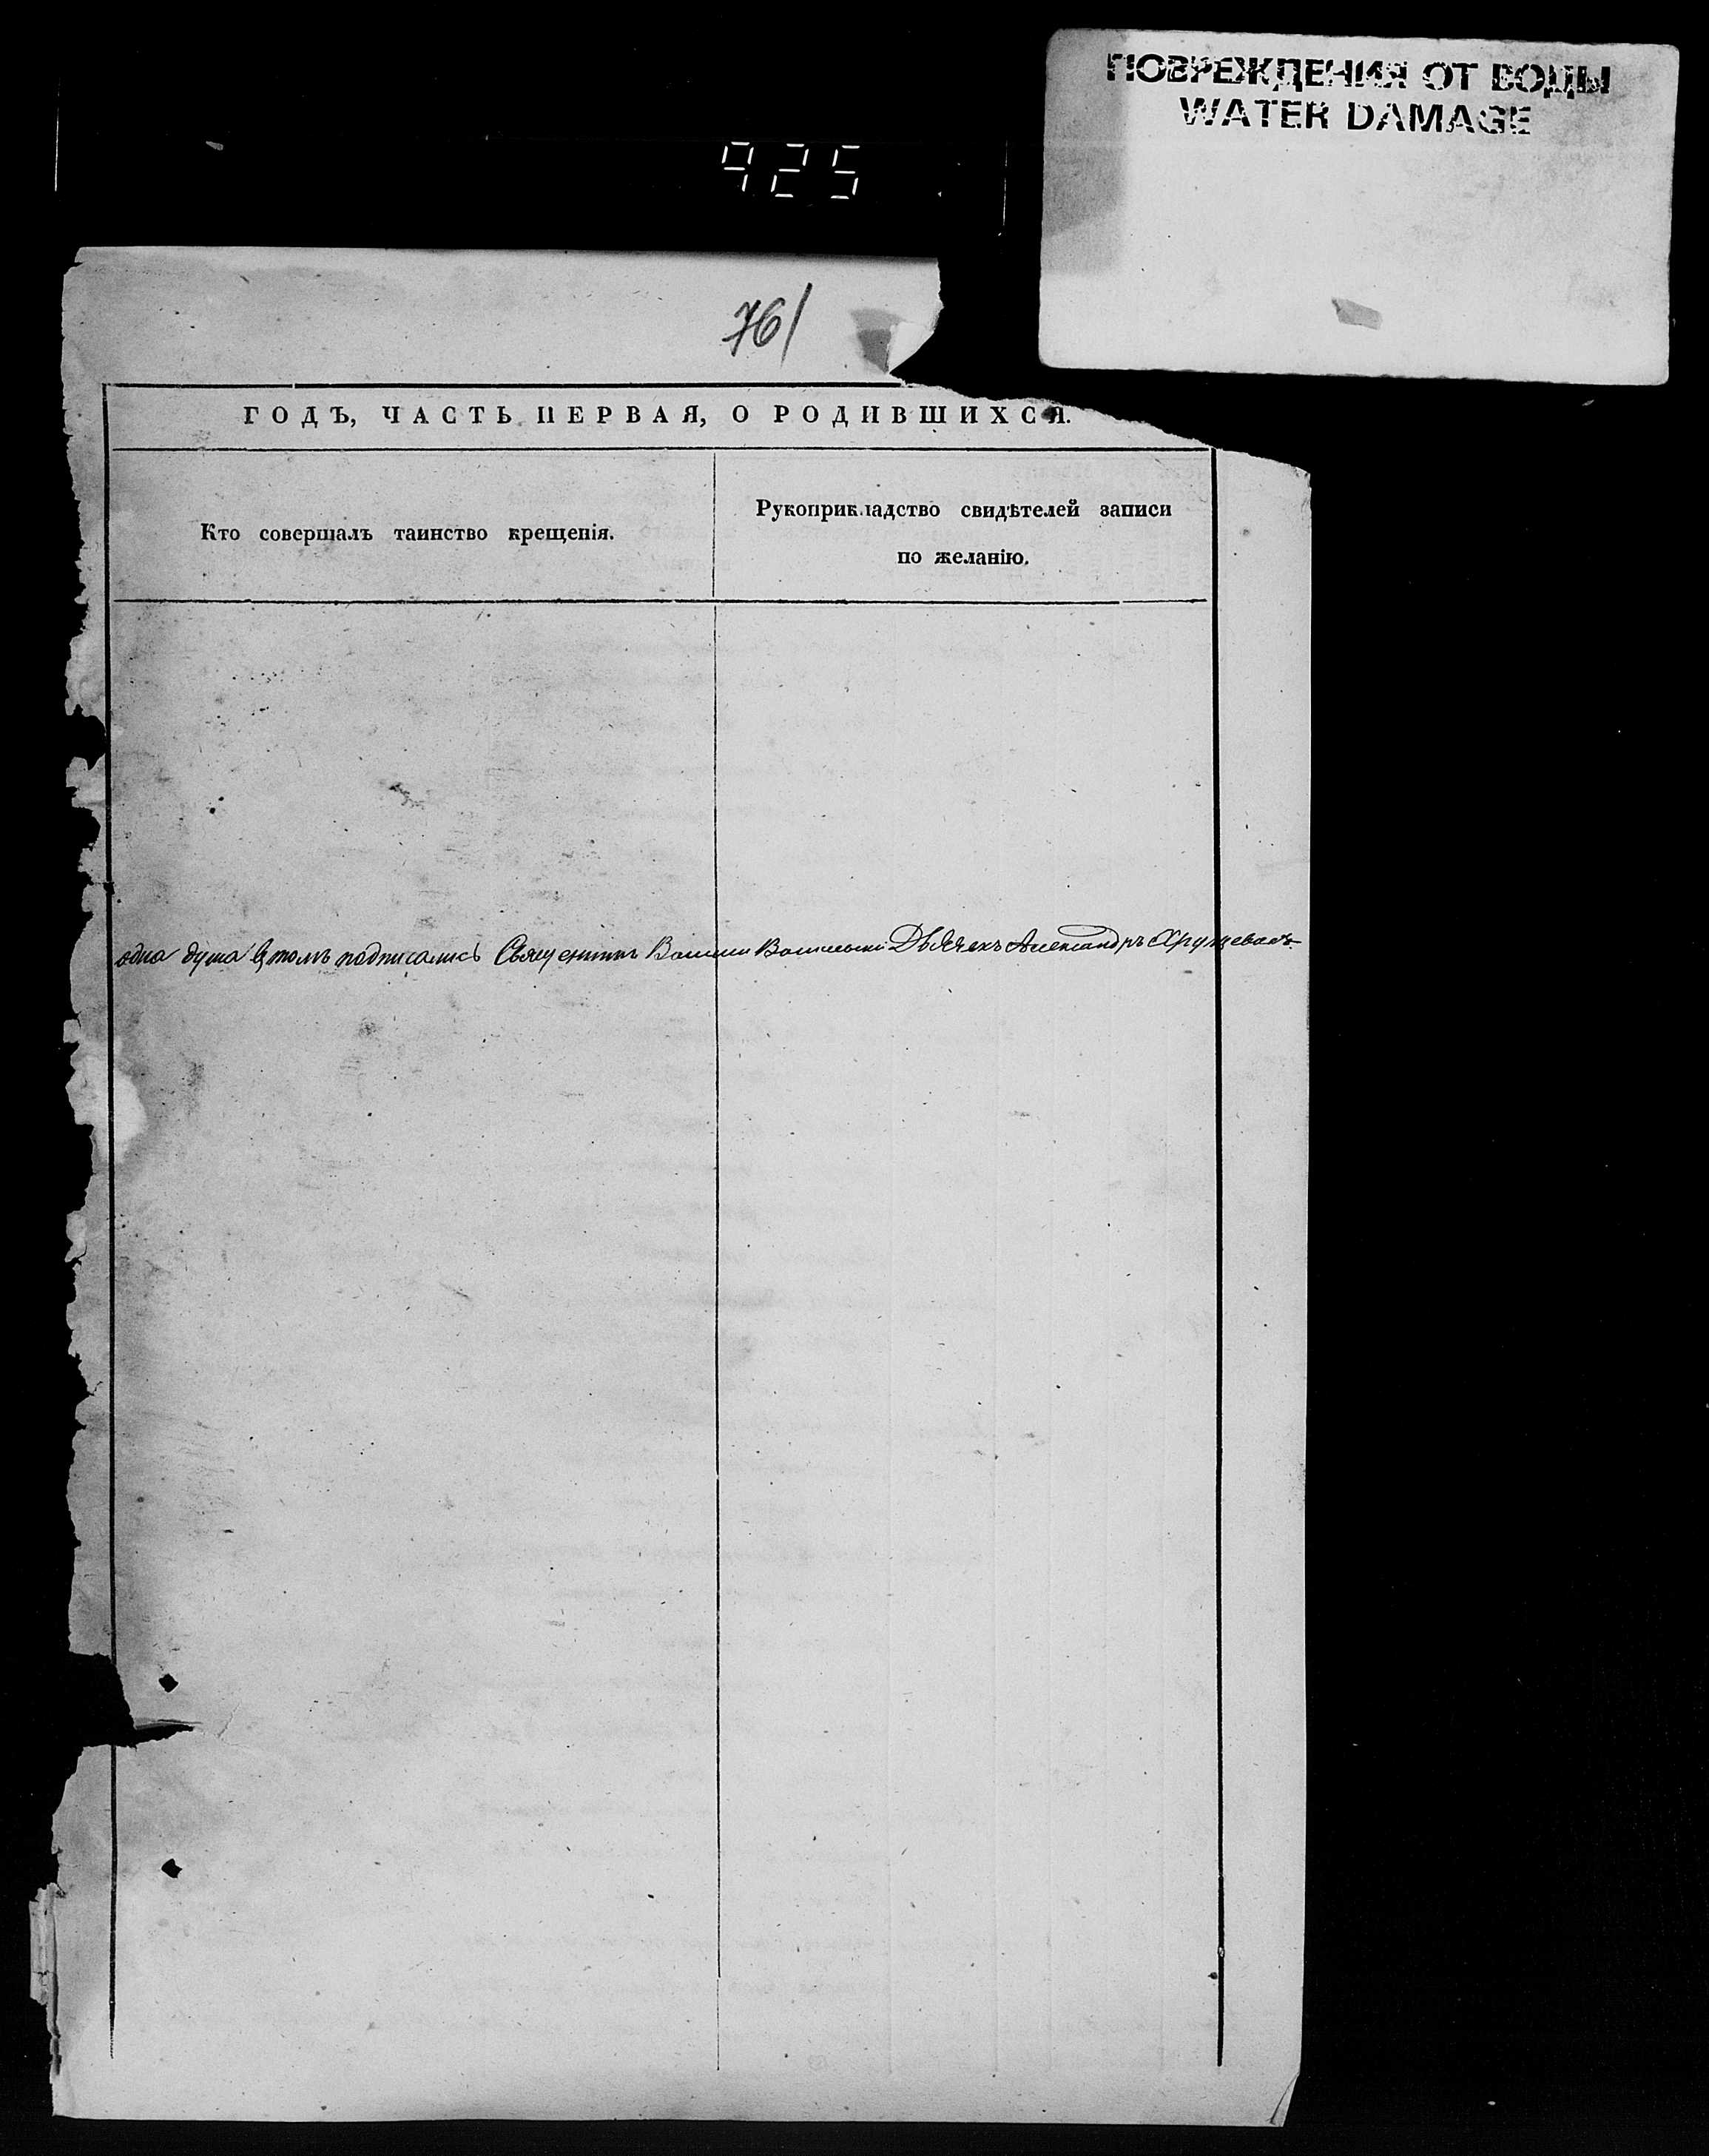 ПОВРЕЖДЕНИЯ ОТ ВОДЫ
WATER DAMAGE
925
761
ГОДЪ, ЧАСТЬ ПЕРВАЯ, О РОДИВШИХСЯ.
Кто совершалъ таинство крещенія.
Рукоприкладство свидѣтелей записи
по желанію.
одна душа въ томъ подписались Священникъ Дьячекъ Александръ